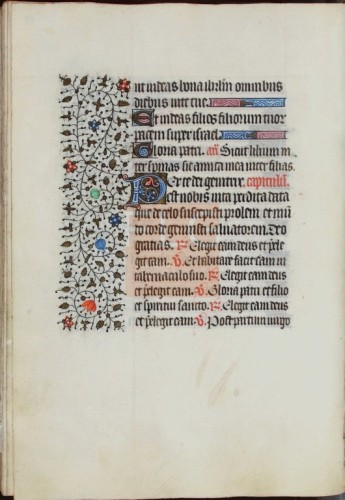 ut videas bona ihrlm omnibus
diebus vite tue.
Et videas filios filiorum tuor
pacem super israel.
Gloria patri. an Sicut lilium in
ter spinas sic amica mea inter filias.
Per te dei genitrix. capitulum.
est nobis vita perdita data
que de celo suscepisti prolem et mu
do corde genuisti salvatorem. Deo
gratias. R Elegit eam deus et pre
legit eam. V Et habitare facit eam in
tabernaculo suo. R Elegit eam deus
et prelegit eam. V Gloria patri et filio
et spiritui sancto. R Elegit eam deus
et prelegit eam. V Post partum virgo